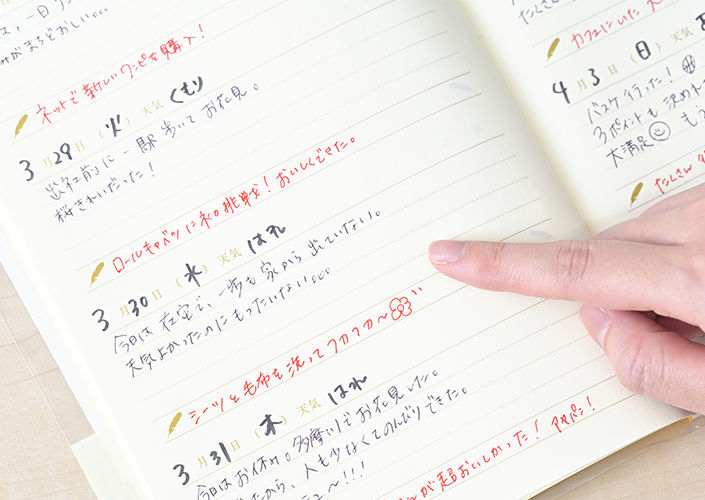 みがまちどおしい。。。
ネットで新しいワンピを購入！
3月29日（火）天気 くもり
出社前に一駅歩いてお花見。
桜きれいだった！
ロールキャベツに初挑戦！おいしくできた。
3月30日（水）天気 はれ
今日は在宅で、一歩も家から出ていない。
天気よかったのにもったいない。。。
シーツと毛布を洗ってフカフカ〜
3月31日（木）天気 はれ
今日はお休み。多摩川でお花見した。
だったから、人も少なくてのんびりできた。
〜！！！
が超おいしかった！
カフェにいた
4月3日（日）天気
バスケ行った！
3ポイントも決め
大満足
たくさん